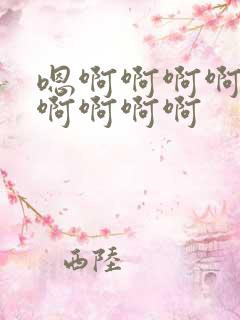 嗯啊啊啊啊
啊啊啊啊
西陸